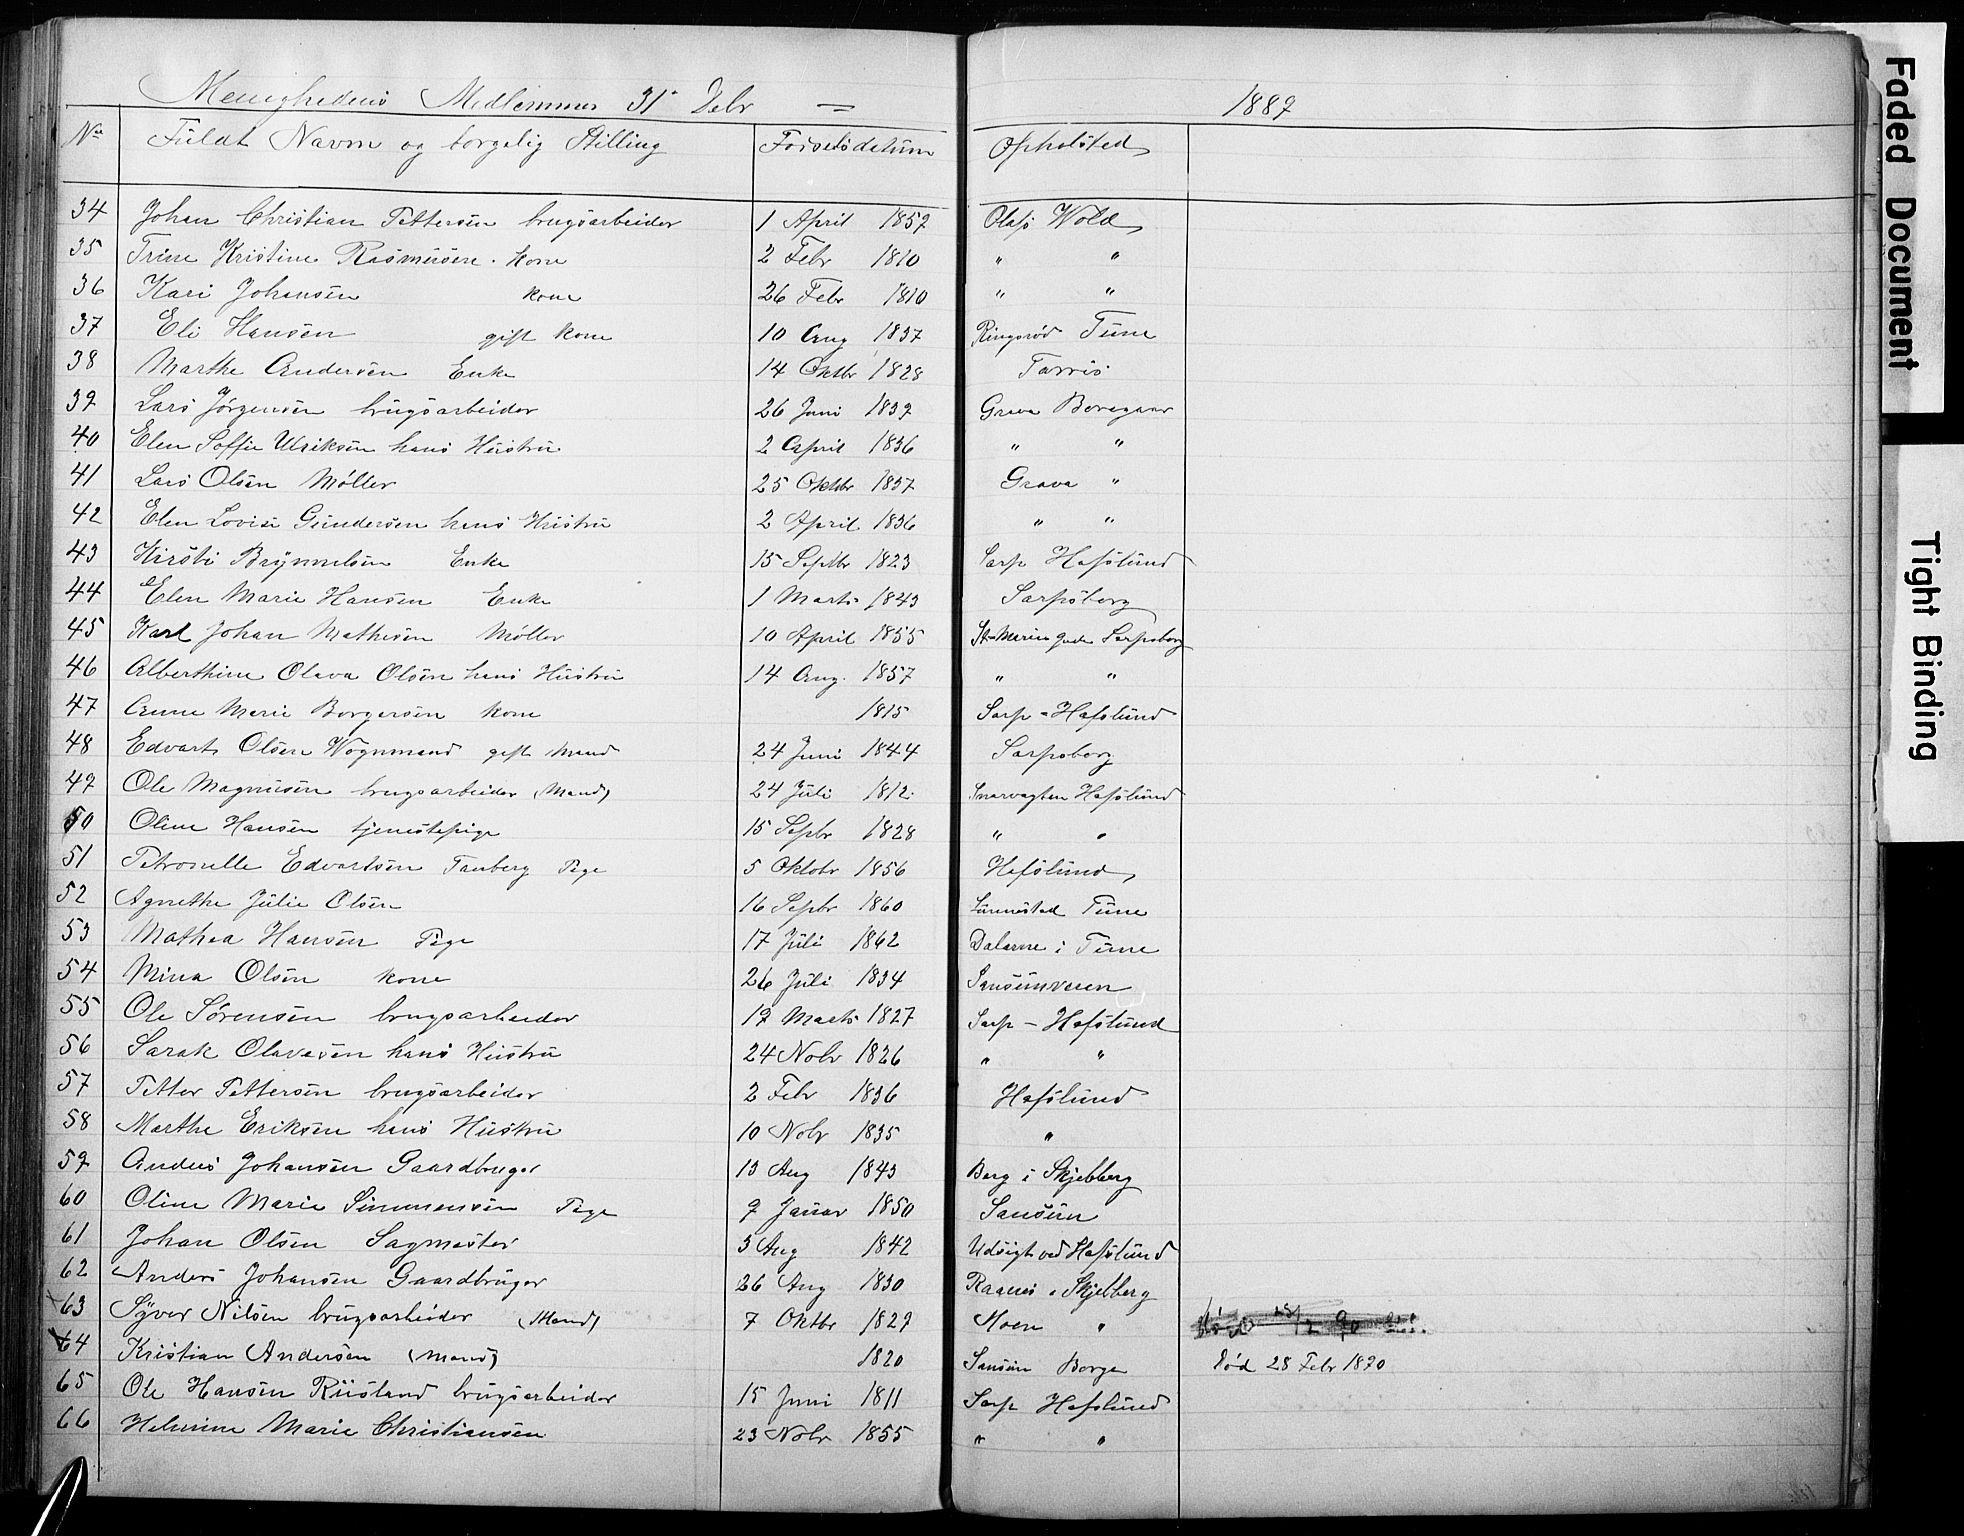 Menighedens Medlemmer 31' Debr = 1889
No Fuldt Navn og borgelig Stilling Fødselsdatum Opholdsted
34 Johan Christian Pettersen brugsarbeider 1 April 1859 Olafs Wold
35 Trine Kristine Rasmusen. kone 2 Febr 1810 " "
36 Kari Johansen kone 26 Febr 1810 " "
37 Eli Hansen gift kone 10 Aug 1837 Ringsrød Tune
38 Marthe Andersen Enke 14 Oktbr 1828 Tarris
39 Lars Jørgensen brugsarbeider 26 Juni 1839 Grava Borregaar
40 Elen Soffie Ulriksen hans Hustru 2 April 1836 " "
41 Lars Olsen Møller 25 Oktbr 1837 Grava "
42 Elen Lovise Gundersen hans Hustru 2 April 1836 " "
43 Kirsti Brynnelsen Enke 15 Septbr 1823 Sarp Hafslund
44 Elen Marie Hansen Enke 1 Marts 1843 Sarpsborg
45 Karl Johan Mathisen Møller 10 April 1855 St Marie gade Sarpsborg
46 Alberthine Olava Olsen hans Hustru 14 Aug. 1857 " "
47 Anne Marie Borgersen kone 1815 Sarp - Hafslund
48 Edvart Olsen Wognmand gift Mand 24 Juni 1844 Sarpsborg
49 Ole Magnusen brugsarbeider (Mand) 24 Juli 1812 Snarvagten Hafslund
50 Oline Hansen tjenestepige 15 Sepbr 1828 " "
51 Petronelle Edvartsen Tanberg Pige 5 Oktobr 1856 Hafslund
52 Agnethe Julie Olsen 16 Sepbr 1860 Tune
53 Mathea Hansen Pige 17 Juli 1862 Dalarne i Tune
54 Mina Olsen kone 26 Juli 1834 Sansumveien
55 Ole Sørensen brugsarbeider 19 Marts 1827 Sarp - Hafslund
56 Sarah Olavesen hans Hustru 24 Nobr 1826 " "
57 Petter Pettersen brugsarbeider 2 Febr 1836 Hafslund
58 Marthe Eriksen hans Hustru 10 Nobr 1835 "
59 Anders Johansen Gaardbruger 13 Aug 1843 Berg i Skjebberg
60 Oline Marie Simmensen Pige 9 Januar 1850 Sansum
61 Johan Olsen Sagmester 3 Aug 1842 Udsigt ved Hafslund
62 Anders Johansen Gaardbruger 26 Aug 1830 Raanes i Skjebberg
63 Syver Nilsen brugsarbeider (Mand) 7 Oktbr 1829 Moen "
64 Kristian Andersen (Mand) 1820 Sansum Borge død 28 Febr 1890
65 Ole Hansen Riisland brugsarbeider 15 Juni 1811 Sarp Hafslund
66 Helmine Marie Christiansen 23 Nobr 1855 " "
Faded Document
Tight Binding